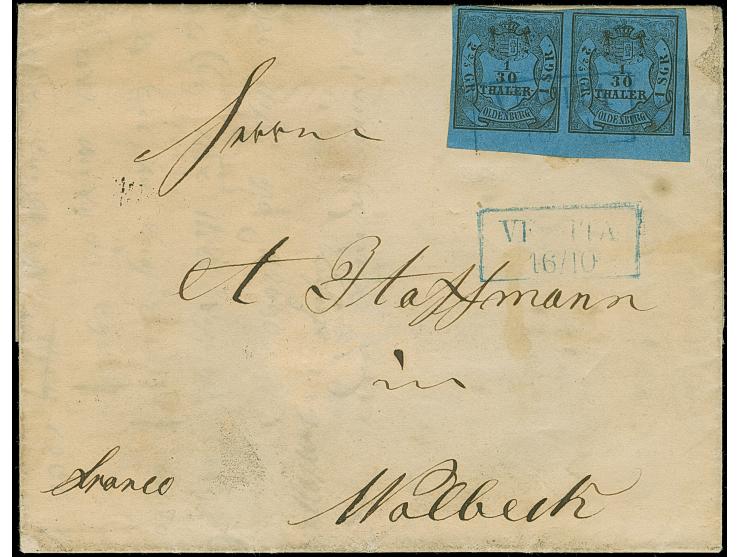 1
30
THALER
OLDENBURG
2 2/5 GR.
1 SGR.
1
30
THALER
OLDENBURG
2 2/5 GR.
1 SGR.
Herrn
16/10
A Hoffmann
in
franco
Wolbeck